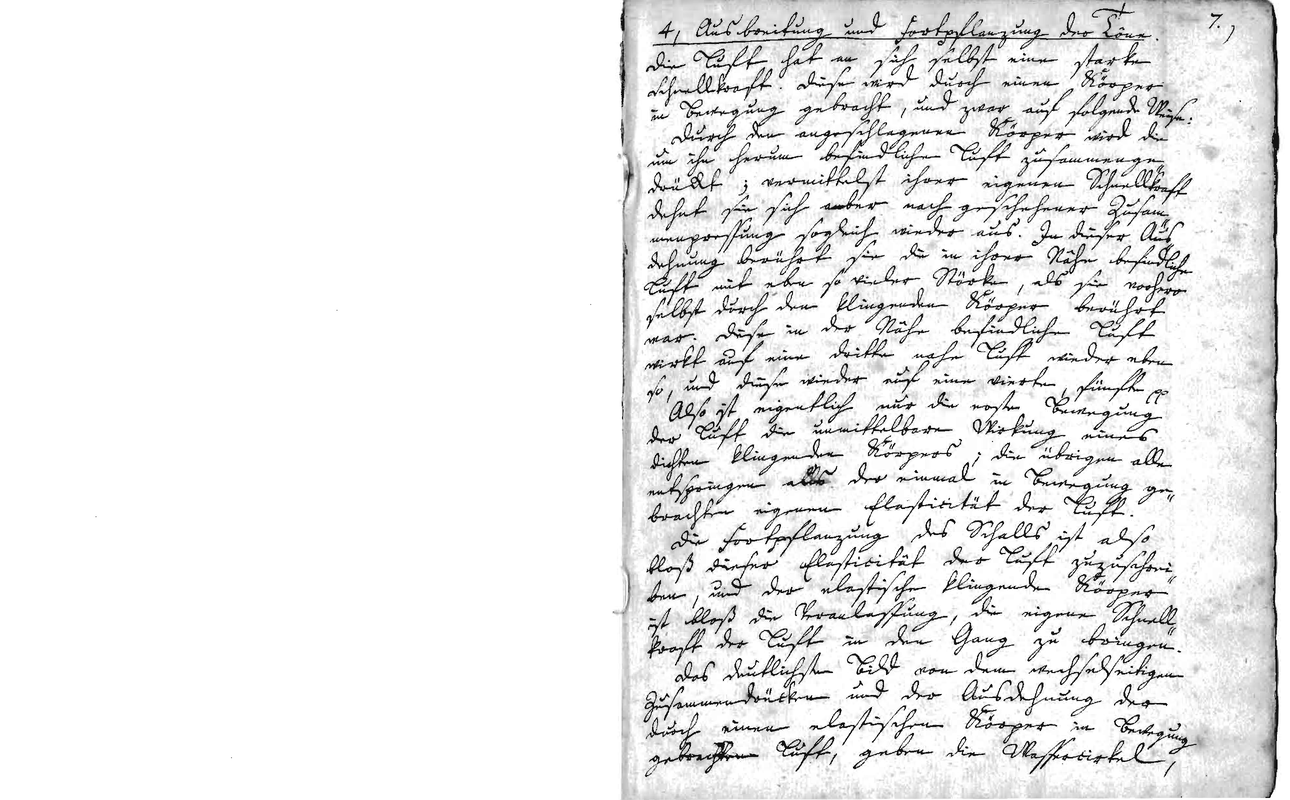 7.)
4, Ausbreitung und Fortpflanzung der Töne.
Die Luft hat an sich selbst eine starke
Schnellkraft. Diese wird durch einen Körper
in Bewegung gebracht, und zwar auf folgende Weise:
Durch den angeschlagenen Körper wird die
um ihn herum befindliche Luft zusammenge„
drükt; vermittelst ihrer eigenen Schnellkraft
dehnt sie sich aber nach geschehener Zusam„
menpressung sogleich wieder aus. In dieser Aus„
dehnung berührt sie die in ihrer Nähe befindliche
Luft mit eben so vieler Stärke, als sie vorhero
selbst durch den klingenden Körper berührt
war. Diese in der Nähe befindliche Luft
wirkt auf eine dritte nahe Luft wieder eben
so, und diese wieder auf eine vierte, fünfte pp
Also ist eigentlich nur die erste Bewegung
der Luft die unmittelbare Wirkung eines
dichten klingenden Körpers; die übrigen alle
entspringen aus der einmal in Bewegung ge„
brachten eigenen Elasticität der Luft.
Die Fortpflanzung des Schalls ist also
bloß dieser Elasticität der Luft zuzuschrei„
ben, und der elastische klingende Körper
ist bloß die Veranlassung, die eigene Schnell„
kraft der Luft in den Gang zu bringen.
Das deutlichste Bild von dem wechselseitigen
Zusammendrücken und der Ausdehnung der
durch einen elastischen Körper in Bewegung
gebrachten Luft, geben die Wassercirkel,